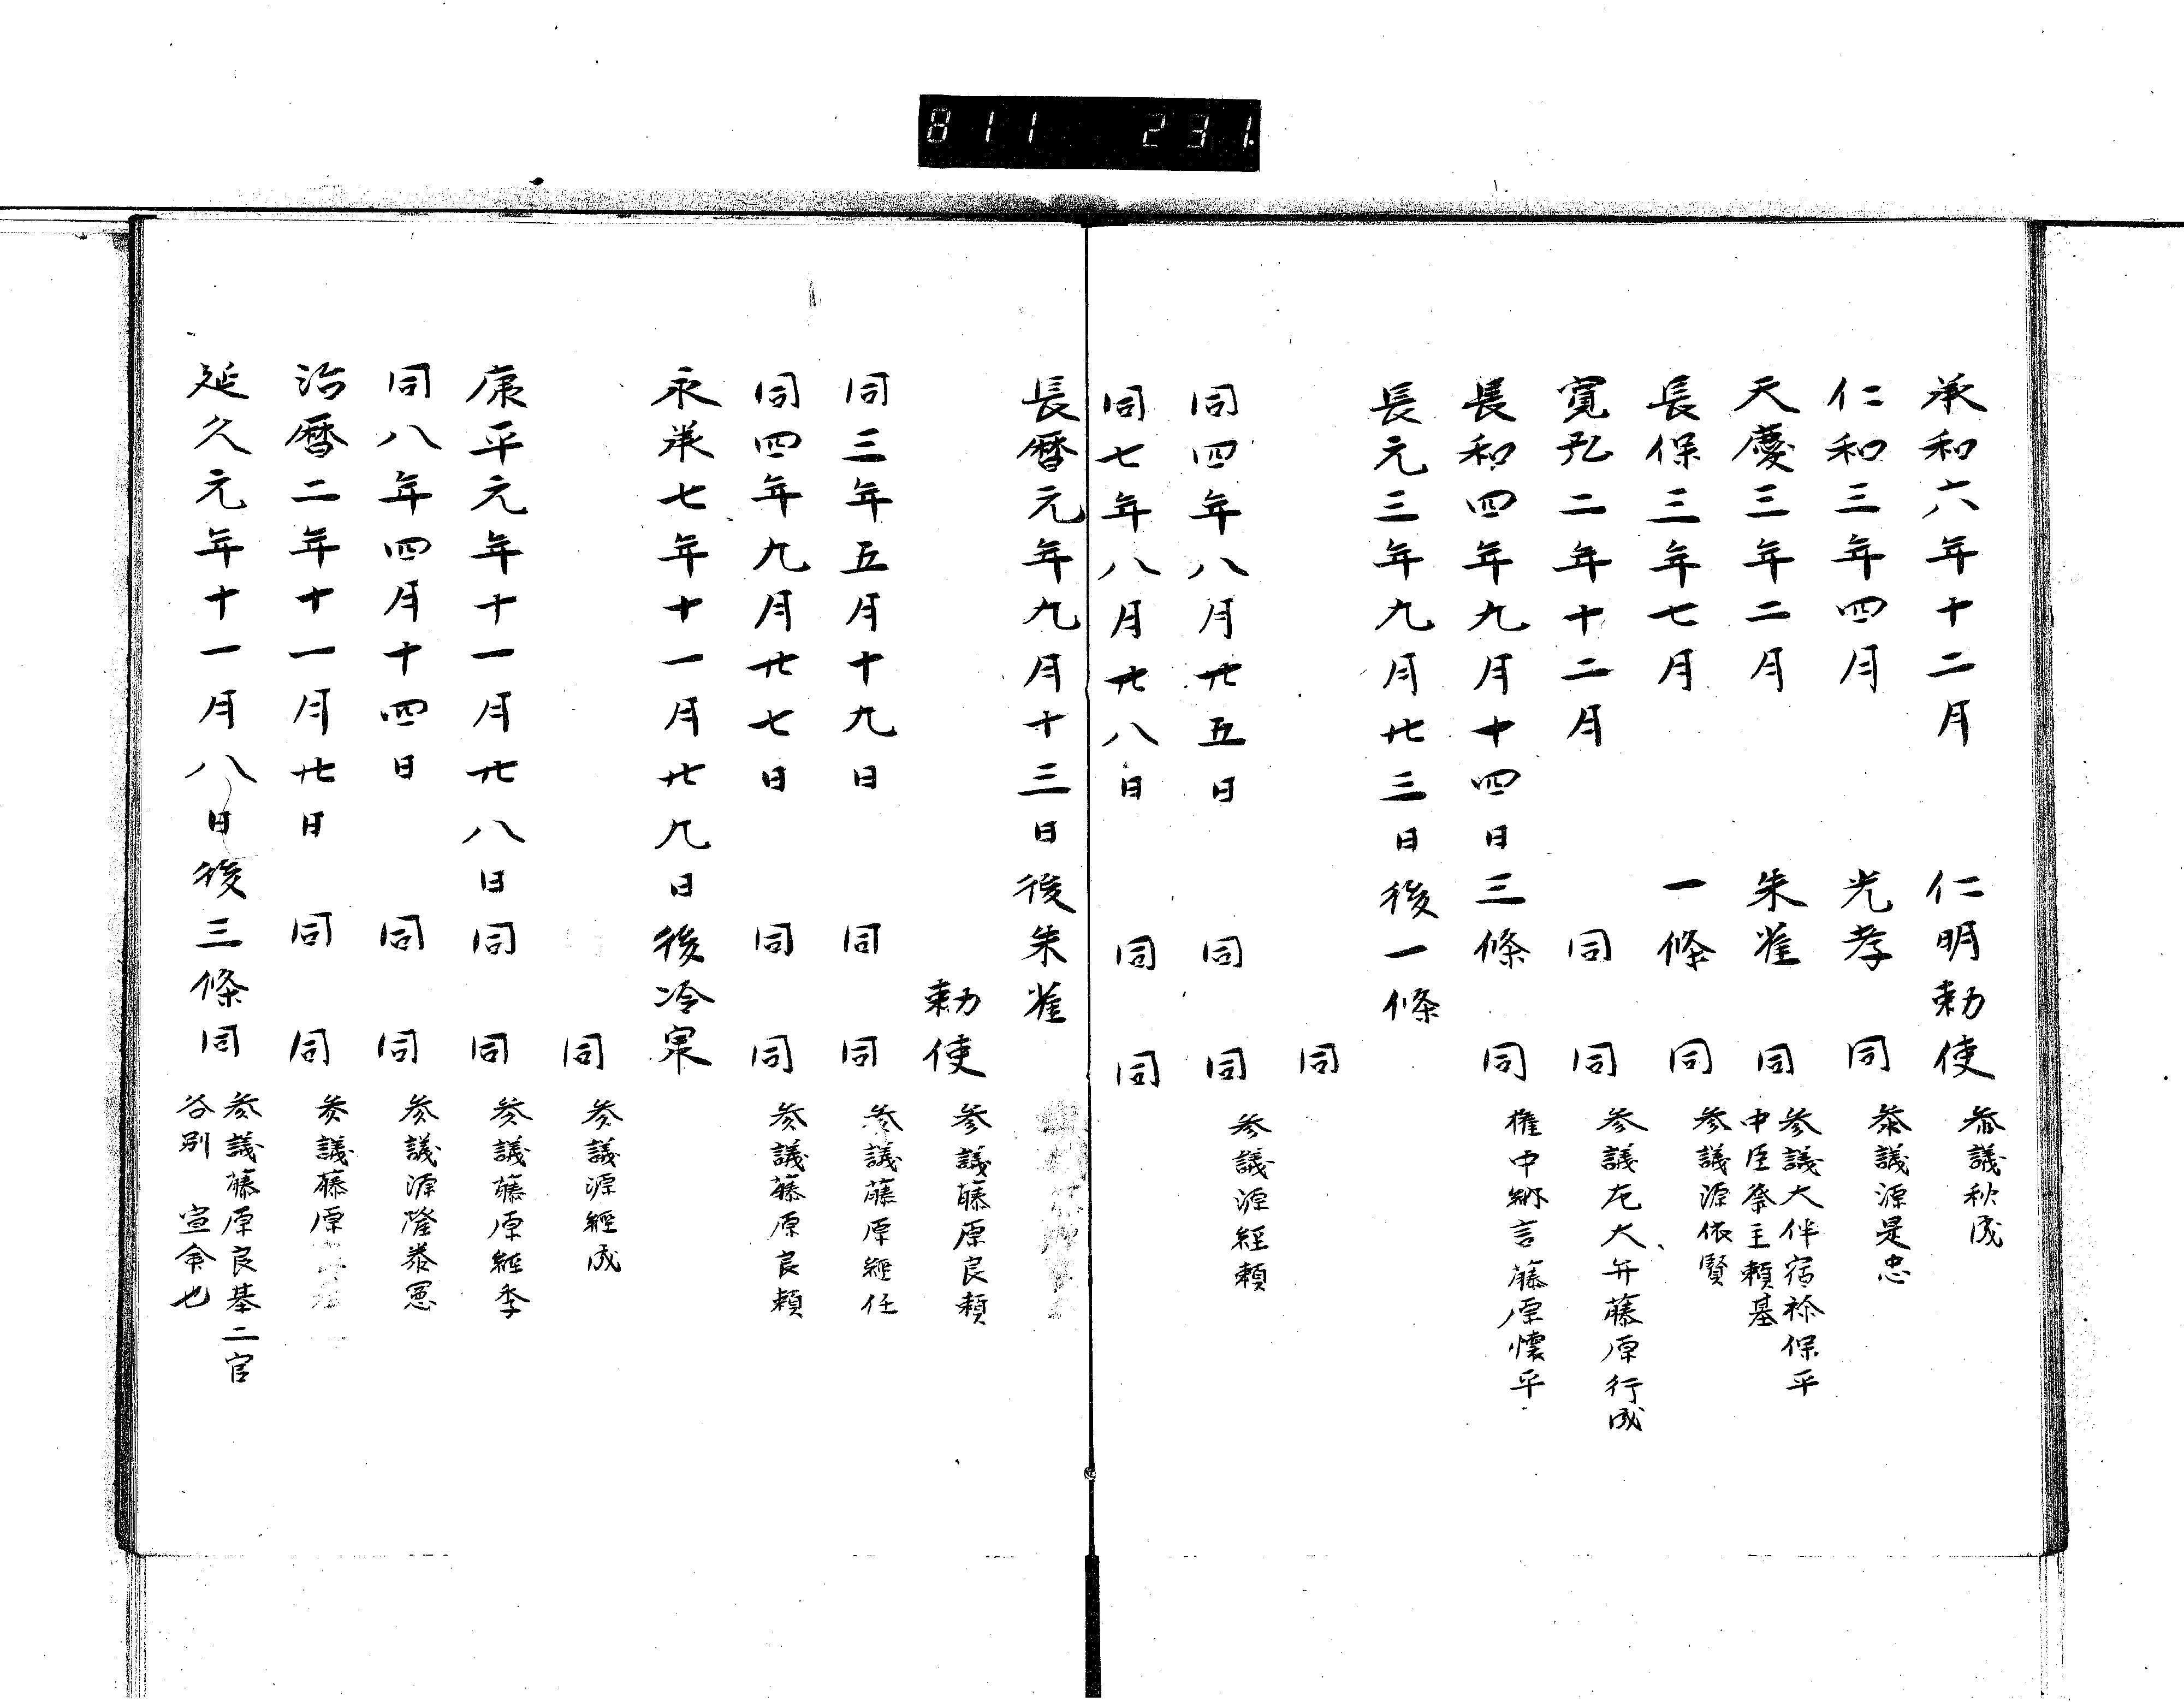 811 231
承和六年十二月 仁明勅使 参議秋成
仁和三年四月 光孝 同 参議源是忠
天慶三年二月 朱雀 同 参議大伴宿祢保平
中臣祭主頼基
長保三年七月 一條 同 参議源依賢
寛弘二年十二月 同 同 参議左大弁藤原行成
長和四年九月十四日三條 同 権中納言藤原懐平
長元三年九月廿三日後一條
同
同四年八月廿五日 同 同 参議源経頼
同七年八月廿八日 同 同
長暦元年九月十三日後朱雀
勅使 参議藤原良頼
同三年五月十九日 同 同 参議藤原経任
同四年九月廿七日 同 同 参議藤原良頼
永承七年十一月廿九日後冷泉
同 参議源経成
康平元年十一月廿八日同 同 参議藤原経季
同八年四月十四日 同 同 参議源隆
治暦二年十一月廿日 同 同 参議藤原
延久元年十一月八日後三條同 参議藤原良基二官
各別 宣命也